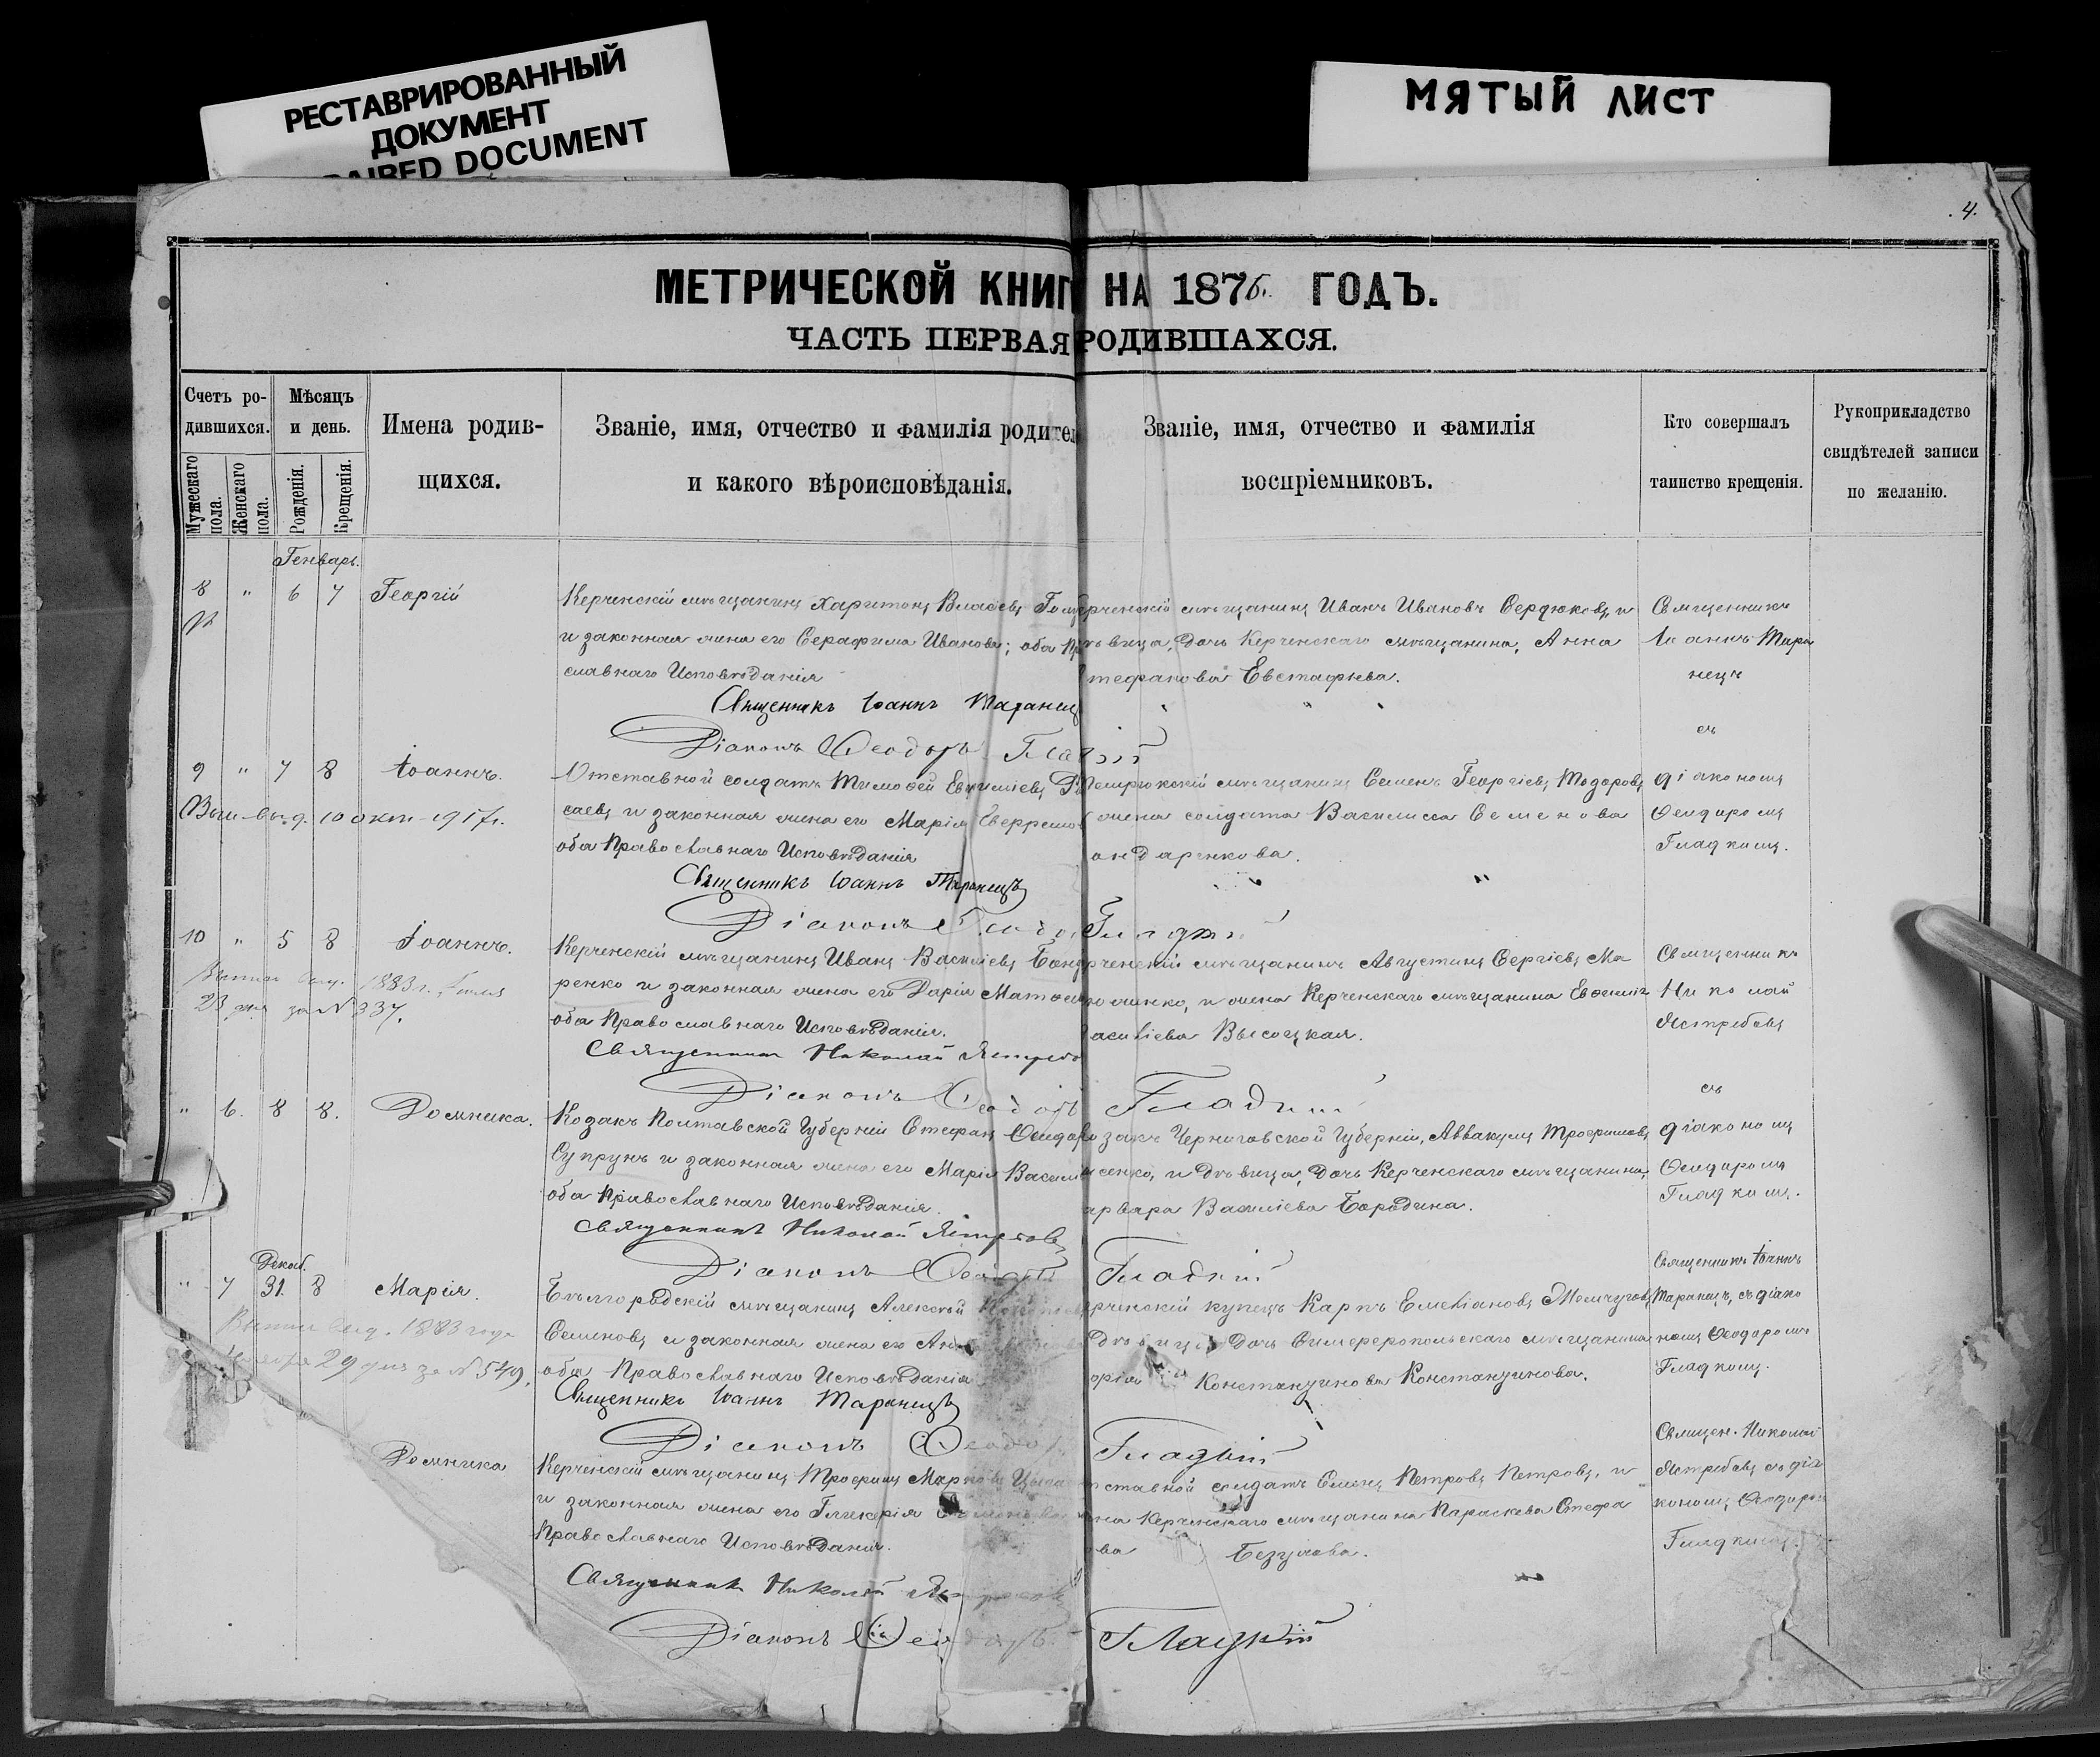 РЕСТАВРИРОВАННЫЙ
ДОКУМЕНТ
DOCUMENT
МЯТЫЙ ЛИСТ
4.
МЕТРИЧЕСКОЙ КНИГ НА 1876. ГОДЪ.
ЧАСТЬ ПЕРВАЯ РОДИВШАХСЯ.
Счетъ ро-
дившихся.
Мужескаго пола.
Женскаго пола.
Мѣсяцъ
и день.
Рожденія.
Крещенія.
Имена родив-
щихся.
Званіе, имя, отчество и фамилія родител
и какого вѣроисповѣданія.
Званіе, имя, отчество и фамилія
воспріемниковъ.
Кто совершалъ
таинство крещенія.
Рукоприкладство
свидѣтелей записи
по желанію.
Генварь.
8 " 6 7 Георгій
Керченскій мѣщанинъ Харитонъ Власіевъ
и законная жена его Серафима Иванова; оба Пр
славнаго Исповѣданія
Священникъ Іоаннъ Таранец
Діаконъ Ѳеодоръ Гладкій
рченскій мѣщанинъ Иванъ Ивановъ Сердюковъ, и
ѣвица, дочь Керченскаго мѣщанина, Анна
тефанова Евстафьева.
Священникъ
Іоаннъ Тара
нецъ
съ
діакономъ
Ѳеодоромъ
Гладкимъ.
9 " 7 8 Іоаннъ.
10 окт 1917г.
Отставной солдатъ Тимоѳей Евѳиміевъ
саевъ и законная жена его Марія
оба Православнаго Исповѣданія
Священникъ Іоаннъ Таранецъ
Діаконъ Ѳеодоръ Гладкій
Темрюкскій мѣщанинъ Семенъ Георгіевъ Тодоровъ
жена солдата Василиса Семенова
ондаренкова.
10 " 5 8 Іоаннъ.
1883 г. Іюля
23 дня за № 337.
Керченскій мѣщанинъ Иванъ Василіевъ Бонд
ренко и законная жена его Дарія Матѳеев
оба Православнаго Исповѣданія.
Священникъ Николай Ястребо
Діаконъ Ѳеодоръ Гладкій
рченскій мѣщанинъ Августинъ Сергіевъ Ма
и жена Керченскаго мѣщанина Евѳимія
асиліева Высоцкая.
Священникъ
Николай
Ястребовъ
съ
діакономъ
Ѳеодоромъ
Гладкимъ.
" 6. 8 8. Домника.
Козакъ Полтавской Губерніи Стефанъ Ѳеодоро
Супрунъ и законная жена его Марія Василі
оба Православнаго Исповѣданія.
Священникъ Николай Ястребовъ
Діаконъ Ѳеодоръ Гладкій
закъ Черниговской Губерніи, Аввакумъ Трофимовъ
сенко, и дѣвица, дочь Керченскаго мѣщанина,
арвара Василіева Бородина.
Декаб.
" 7 31. 8 Марія.
1883 года
29 дня за № 549.
Бѣлгородскій мѣщанинъ Алексѣй
Семеновъ и законная жена его
оба Православнаго Исповѣданія
Священникъ Іоаннъ Таранецъ
Діаконъ Ѳеодоръ Гладкій
рченскій купецъ Карпъ Емеліановъ
дѣвица дочь Симферопольскаго мѣщанина
Константинова Константинова.
Священникъ Іоаннъ
Таранецъ, съ діако
номъ Ѳеодоромъ
Гладкимъ.
Домника
Керченскій мѣщанинъ Трофимъ Марковъ
и законная жена его Гликерія
Православнаго Исповѣданія.
Священникъ Николай
Діаконъ Ѳеодоръ Гладкій
тставной солдатъ Семенъ Петровъ Петровъ, и
на Керченскаго мѣщанина Параскева Стефа
ва Безумова.
Священ. Николай
Ястребовъ съ діа
кономъ Ѳеодором
Гладкимъ.